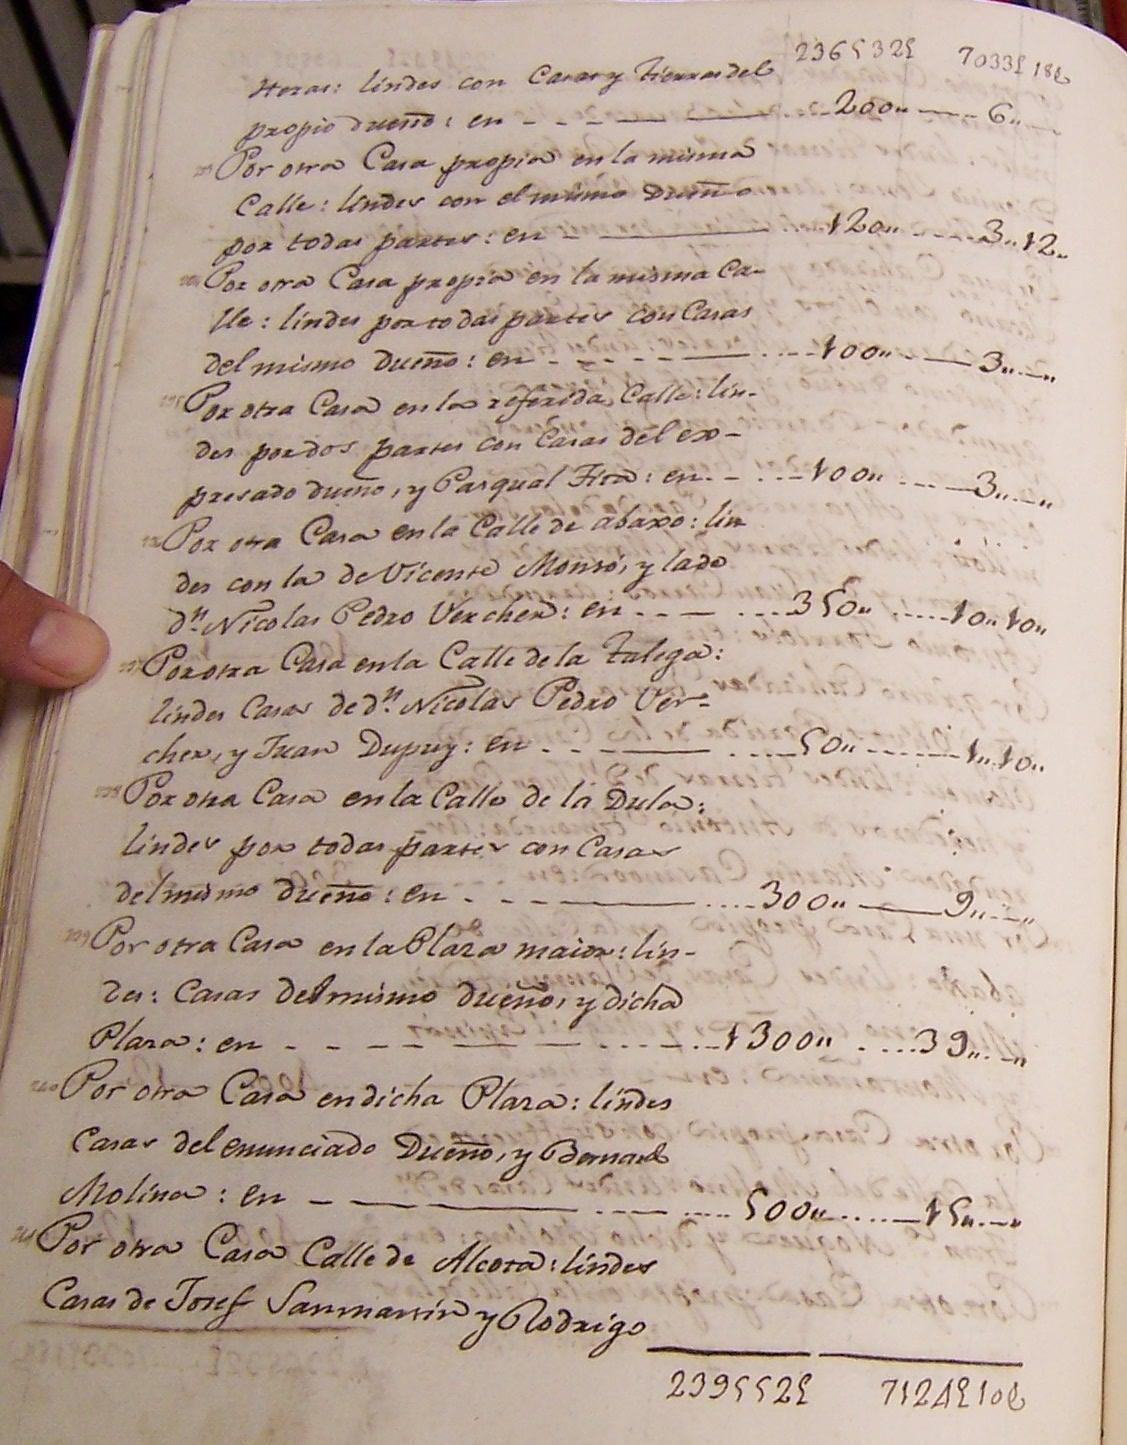 236532£ 7033£18₰
Heras: lindes con Casas y tierras del
propio dueño: en - - - 200,, — 6,,
Por otra Casa propia en la misma
Calle: lindes con el mismo Dueño
por todas partes: en - 120,, - - - 3,,12,,
Por otra Casa propia en la misma Ca-
lle: lindes por todas partes con Casas
del mismo dueño: en - - - 100,, — 3,,
Por otra Casa en la referida Calle: lin-
des por dos partes con Casas del ex-
presado dueño, y Pasqual Fita: en - - - 100,, - - - 3,,
Por otra Casa en la Calle de abaxo: lin
des con la de Vicente Monsó, y lado
dn. Nicolas Pedro Vercher: en - - - 350,, - - - 10,,10,,
237 Por otra Casa en la Calle de la Talega:
lindes Casas de dn. Nicolas Pedro Ver=
cher, y Juan Dupuy: en - - - 50,, - - - 1,,10,,
238 Por otra Casa en la Calle de la Dula:
lindes por todas partes con Casas
del mismo dueño: en - - - 300,, — 9,,
239 Por otra Casa en la Plaza maior: lin-
des: Casas del mismo dueño, y dicha
Plaza: en - - - 1300,, - - - 39,,
240 Por otra Casa en dicha Plaza: lindes
Casas del enunciado Dueño, y Bernard
Molina: en - - - 500,, - - - 15,,
241 Por otra Casa Calle de Alcora: lindes
Casas de Josef Sanmartin y Rodrigo
239552£ 7124£10₰